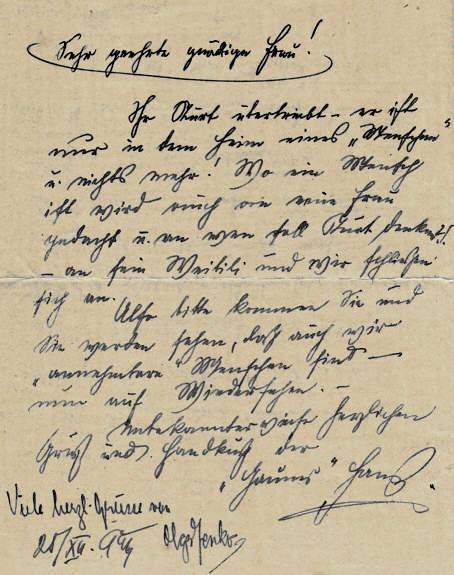 Sehr geehrte gnädige Frau!
Ihr Kurt übertreibt – er ist
nur in dem Heim eines „Menschen"
u. nichts mehr! Wo ein Mensch
ist wird auch an eine Frau
gedacht u. an wen soll Kurt denken?!
– an sein Weibili und wir schließen
sich an. Also bitte kommen Sie und
Sie werden sehen, daß auch wir
„annehmbare" Menschen sind –
nun auf Wiedersehen. –
Unbekannterweise herzlichen
Gruß und Handkuß der
Hans
Viele herzl. Grüsse von
20/XII.